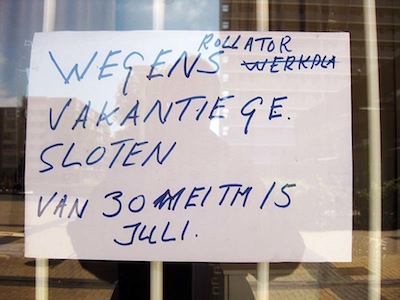 ROLLATOR
WEGENS WERKPLA
VAKANTIE GE.
SLOTEN
VAN 30 MEI TM 15
JULI.